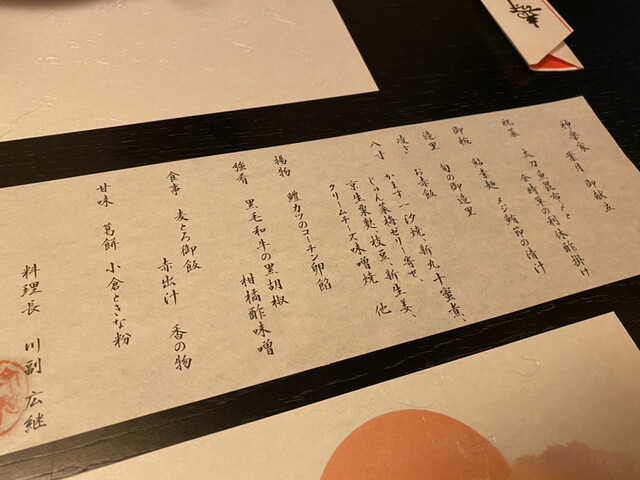 神楽家 葉月 御献立
先菜 太刀魚昆布〆と
金時草の利休酢掛け
御椀 鮎素麺 メジ鮪節の清汁
造里 旬の御造里
凌ぎ お赤飯
八寸 かます一汐焼、新丸十蜜煮、
じゅん菜梅ゼリー寄せ、
京生粟麩、枝豆、新生姜、
クリームチーズ味噌焼 他
揚物 鱧カツのコーチン卵餡
強肴 黒毛和牛の黒胡椒
柑橘酢味噌
食事 麦とろ御飯
赤出汁 香の物
甘味 葛餅 小倉ときな粉
料理長 川副 広継
寿